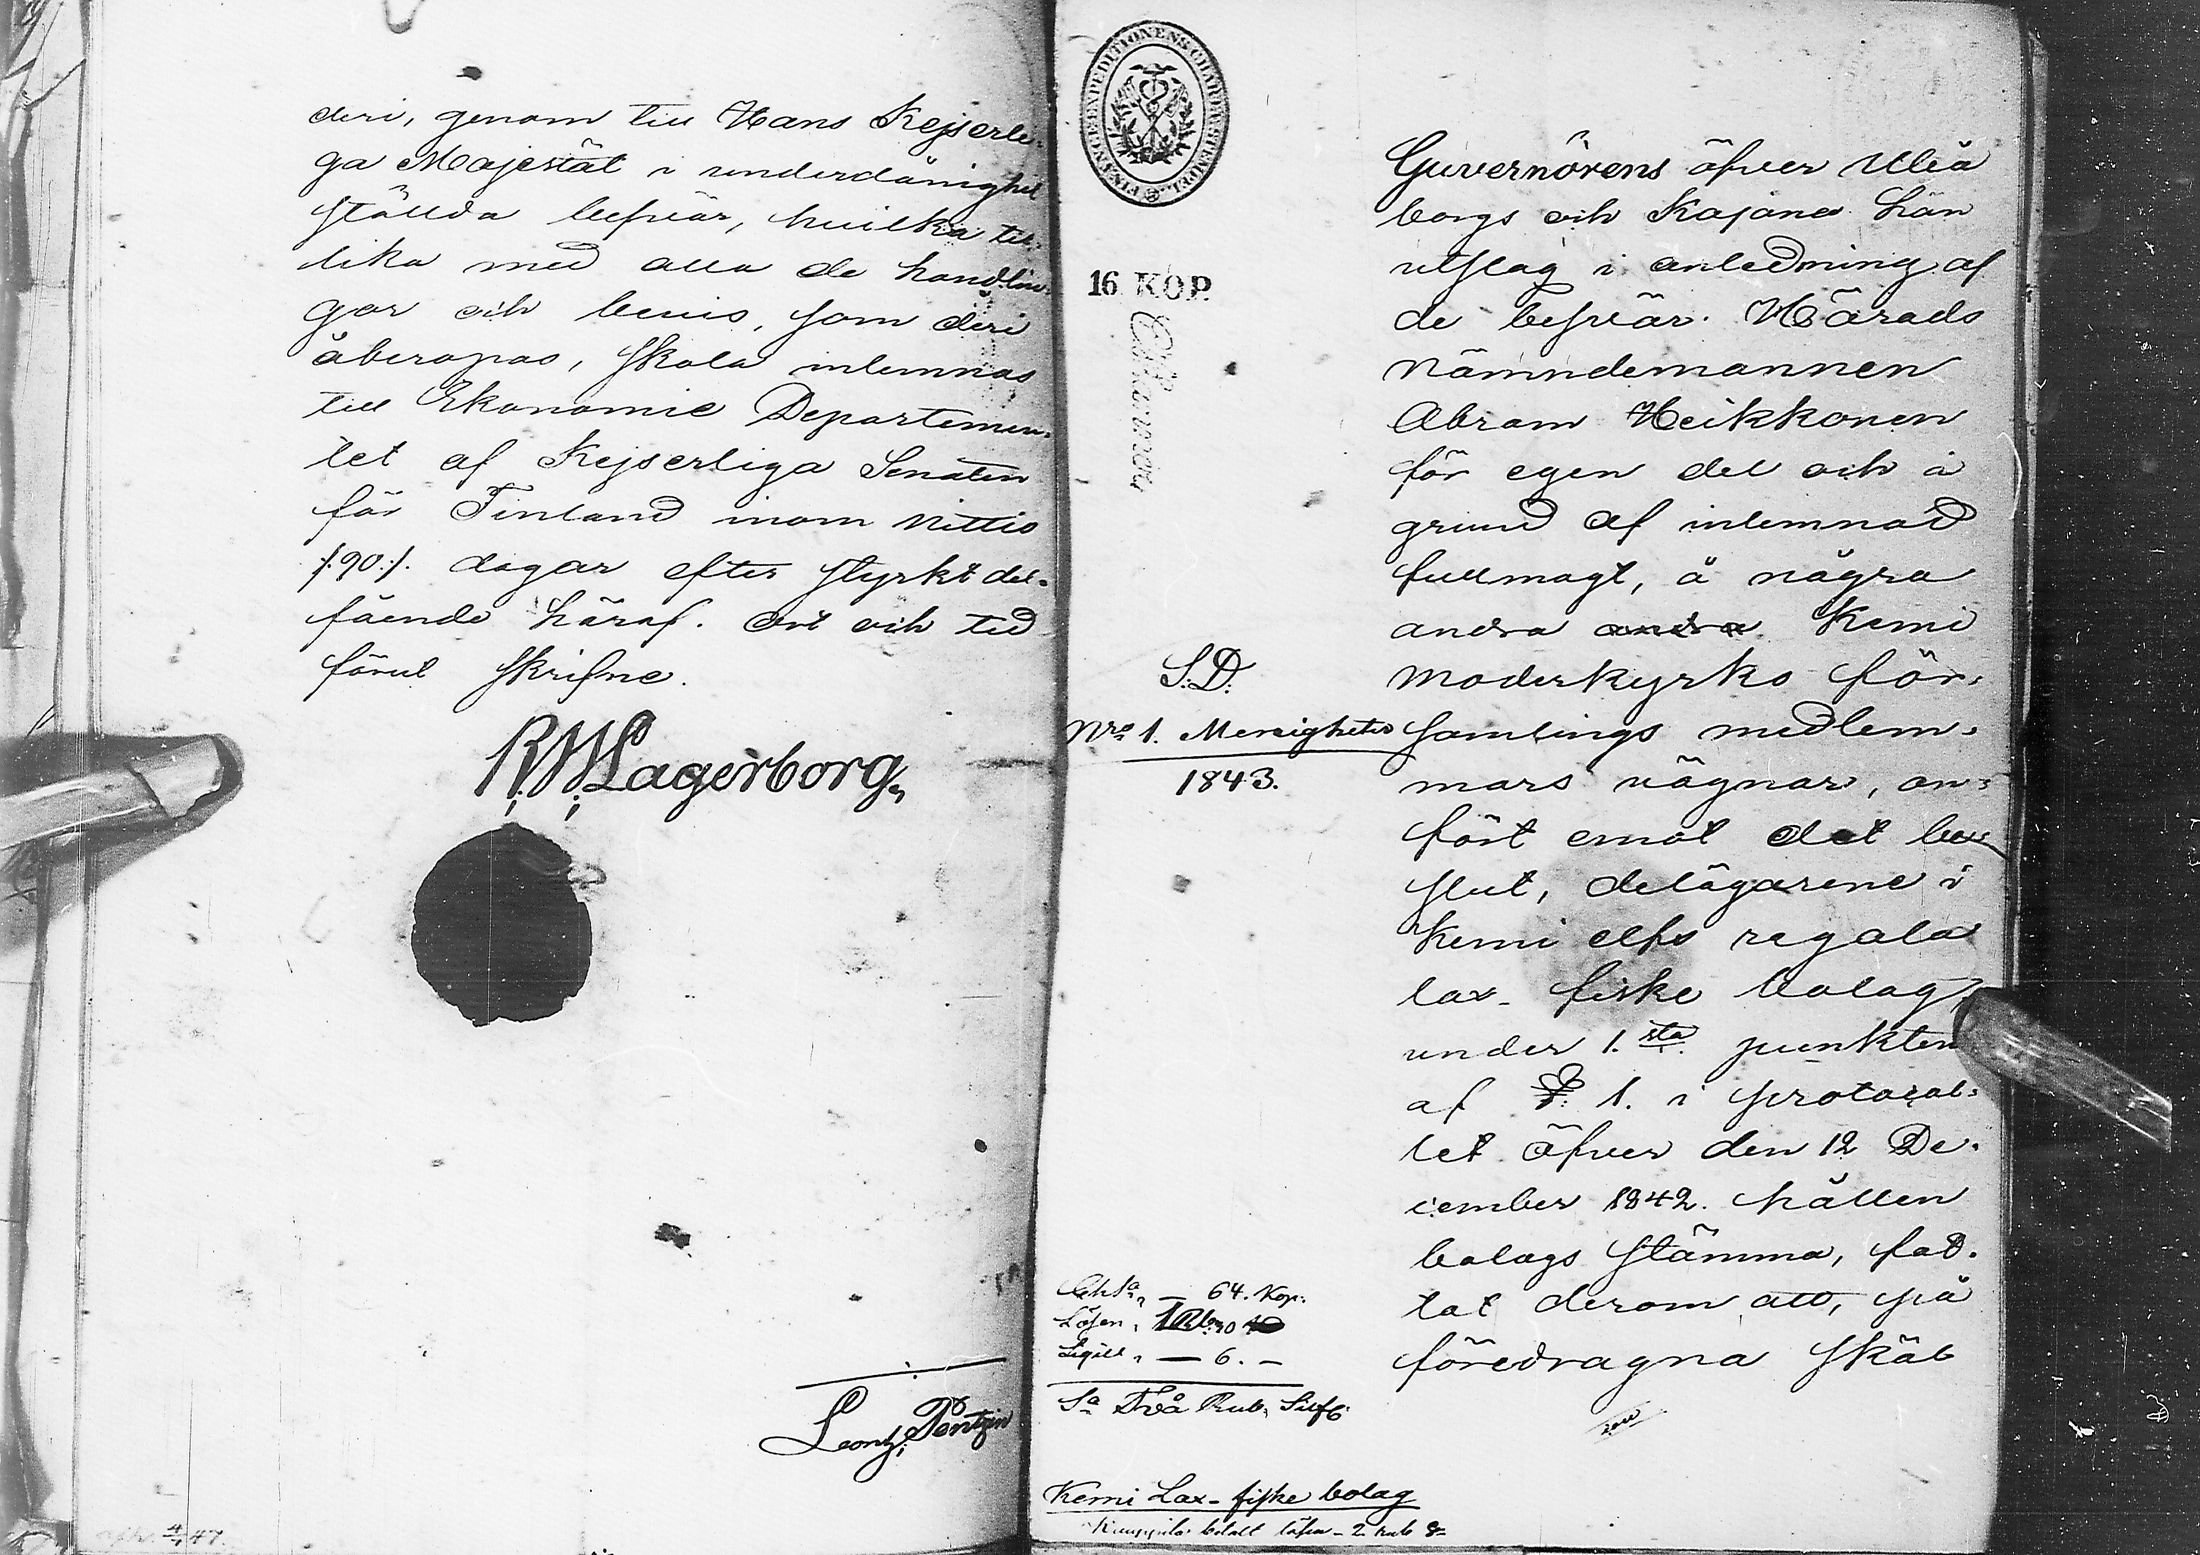 deri, genom till Hans Kejserli-
ga Majestät i underdånighet
ställda besvär, hvilka til-
lika med alla de handlin-
gar och bevis, som deri
åberopas, skola inlemnas
till Ekonomie Departemen-
tet af Kejserliga Senaten
för Finland inom nittio
/:90:/ dagar efter styrkt del-
fående häraf. Ort och tid
förut skrifne.
R.W.Lagerborg
Leonh. Pentzin
FINANCE EXPEDITIONENS CHARTÆ STEMPEL
16 KOP.
S.D.
Nro 1. Menighets
1843.
Guvernörens öfver Uleå
borgs och Kajana län
utslag i anledning af
de besvär Härads
nämndemannen
Abram Heikkonen
för egen del och å
grund af inlemnad
fullmagt, å några
andra andra Kemi
moderkyrko för-
samlings medlem-
mars vägnar, an-
fört emot det be-
slut, delägarene i
Kemi elfs regala
lax-fiske bolag,
under 1.sta punkten
af §. 1. i protocol-
let öfver den 12 De-
cember 1842. hållen
bolags stämma, fat-
tat derom att, på
föredragna skäl
Ch Sa — 64. Kop.
Lösen, 1 Rb. 30
Sigill, — 6. —
Sa Två Rub. Silf.
Kemi Lax-fiske bolag
betalt lösen - 2 rub
47.